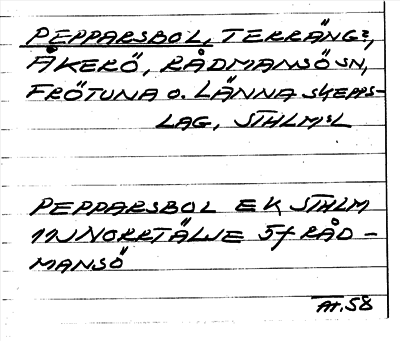 PEPPARSBOL, TERRÄNG?,
ÅKERÖ, RÅDMANSÖ SN,
FRÖTUNA O. LÄNNA SKEPPS-
LAG, STHLM:L
PEPPARSBOL EK STHLM
11J NORRTÄLJE 5f RÅD-
MANSÖ
58